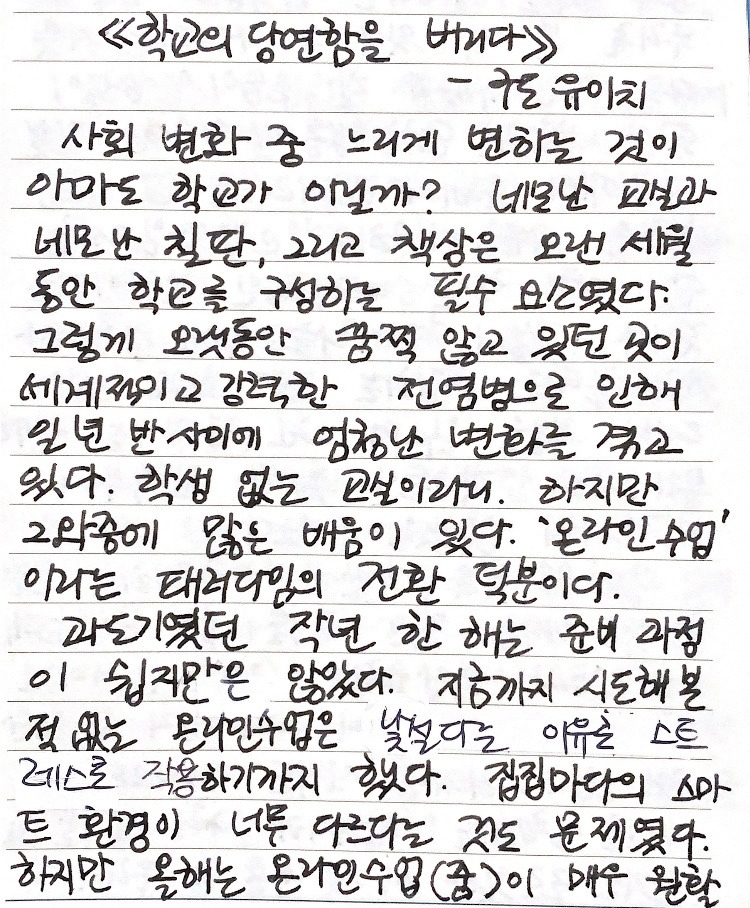 ≪학교의 당연함을 버리다≫
- 구도 유이치
사회 변화 중 느리게 변하는 것이
아마도 학교가 아닐까? 네모난 교실과
네모난 칠판, 그리고 책상은 오랜 세월
동안 학교를 구성하는 필수 요소였다.
그렇게 오랫동안 꿈쩍 않고 있던 곳이
세계적이고 강력한 전염병으로 인해
일 년 반 사이에 엄청난 변화를 겪고
있다. 학생 없는 교실이라니. 하지만
그 와중에 많은 배움이 있다. '온라인 수업'
이라는 패러다임의 전환 덕분이다.
과도기였던 작년 한 해는 준비 과정
이 쉽지만은 않았다. 지금까지 시도해 본
적 없는 온라인수업은 낯설다는 이유로 스트
레스로 작용하기까지 했다. 집집마다의 스마
트 환경이 너무 다르다는 것도 문제였다.
하지만 올해는 온라인수업(줌)이 매우 원활